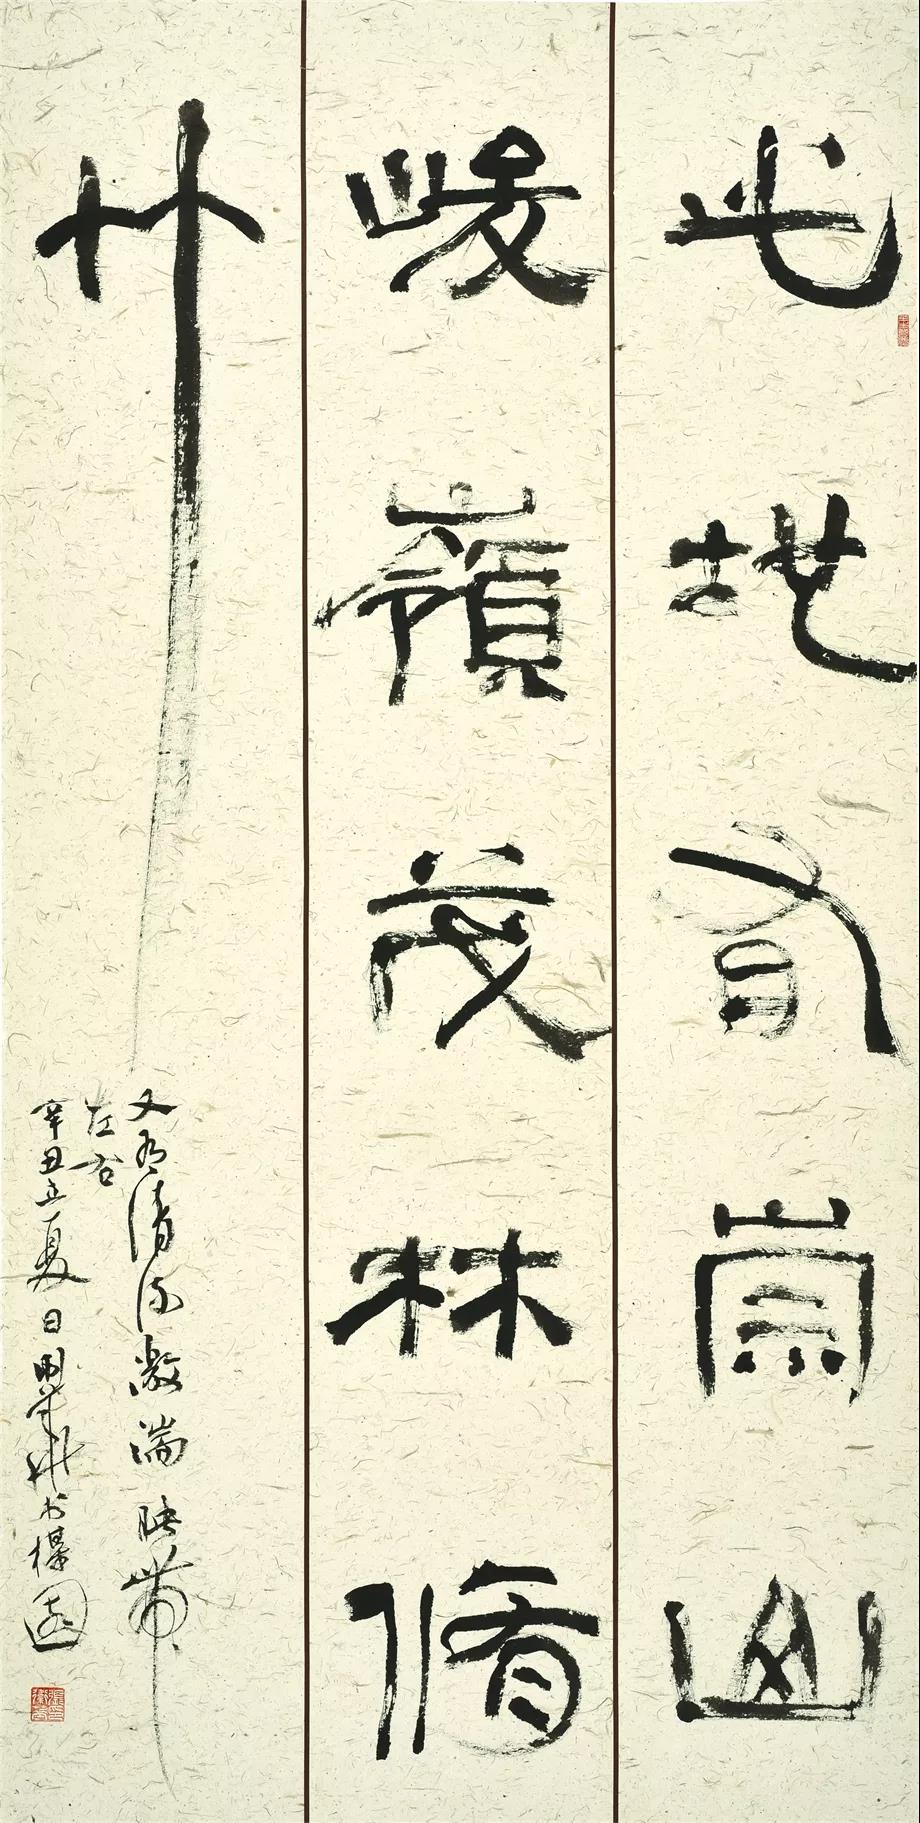 此地有崇山
峻嶺茂林脩
竹
又有清流激湍映帶
左右
辛丑立夏日 书